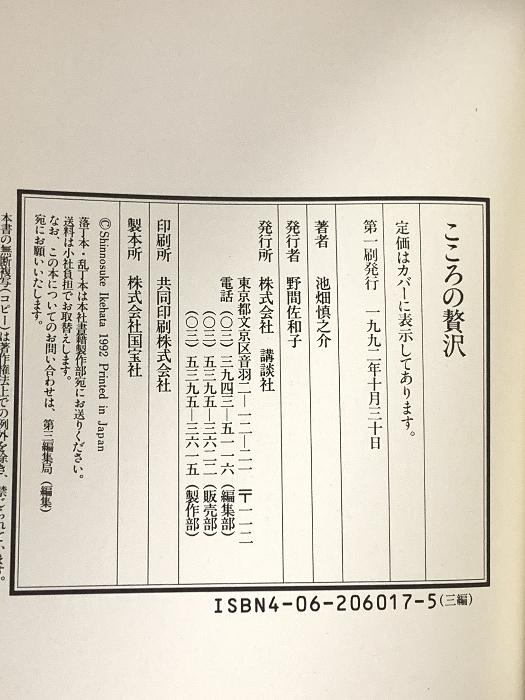 こころの贅沢
定価はカバーに表示してあります。
第一刷発行　一九九二年十月三十日
著者　池畑慎之介
発行者　野間佐和子
発行所　株式会社　講談社
東京都文京区音羽二―一二―二一　〒一一二
電話　（〇三）三九四三―五一一六（編集部）
（〇三）五三九五―三六二二（販売部）
（〇三）五三九五―三六一五（製作部）
印刷所　共同印刷株式会社
製本所　株式会社国宝社
©Shinnosuke Ikehata 1992 Printed in Japan
落丁本・乱丁本は本社書籍製作部宛にお送りください。
送料は小社負担でお取替えします。
なお、この本についてのお問い合わせは、第三編集局（編集）
宛にお願いいたします。
本書の無断複写（コピー）は著作権法上での例外を除き、禁じられています。
ISBN4-06-206017-5（三編）